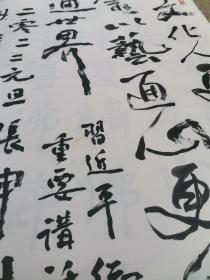 文化人更
以藝通心更
通世界
習近平
重要講話
二零二二元旦
張